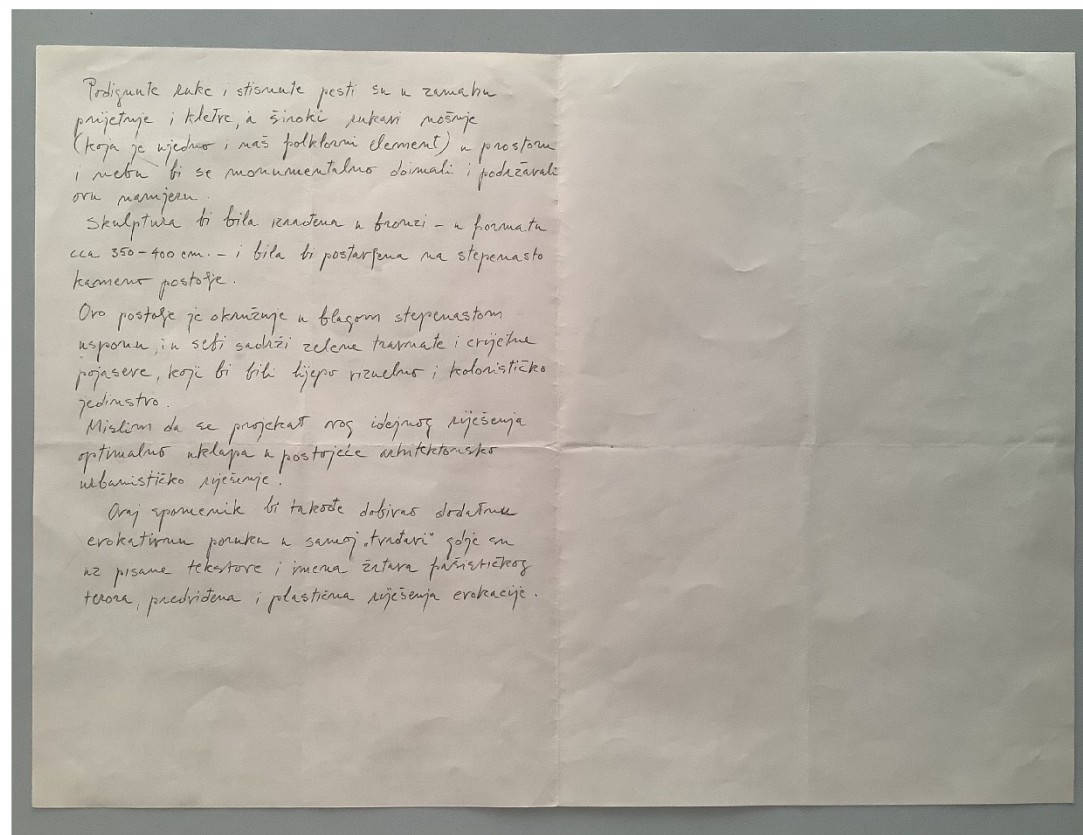 Podignute ruke i stisnute pesti su u zamahu
prijetnje i kletve, a široki rukavi nošnje
(koja je ujedno i naš folklorni element) u prostoru
i nebu bi se monumentalno doimali i podržavali
ovu namjeru.
Skulptura bi bila izrađena u bronzi – u formatu
cca 350-400 cm. – i bila bi postavljena na stepenasto
kameno postolje.
Ovo postolje je okružuje u blagom stepenastom
usponu, i u sebi sadrži zelene travnate i cvijetne
pojaseve, koji bi bili lijepo vizuelno i kolorističko
jedinstvo.
Mislim da se projekat ovog idejnog riješenja
optimalno uklapa u postojeće arhitektonsko
urbanističko riješenje!
Ovaj spomenik bi takođe dobivao dodatnu
evokativnu poruku u samoj „tvrđavi" gdje su
uz pisane tekstove i imena žrtava fašističkog
terora, predviđena i plastična riješenja evokacije.